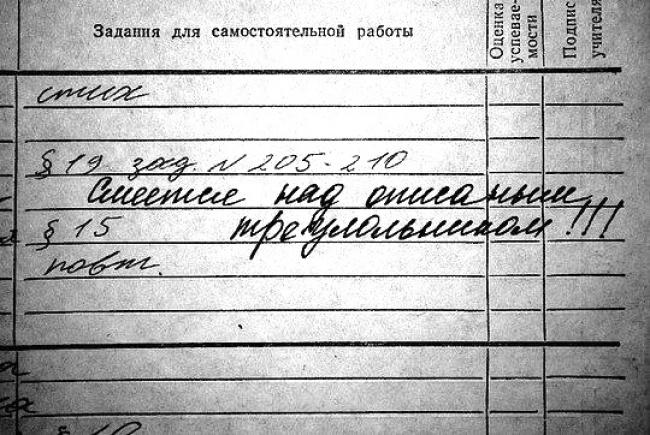 Задания для самостоятельной работы
Оценка успевае-мости
Подпис учителя
стих
§ 19 зад. N 205-210
Смеется над описаным
§ 15 треугольником!!!
повт.
§ 10